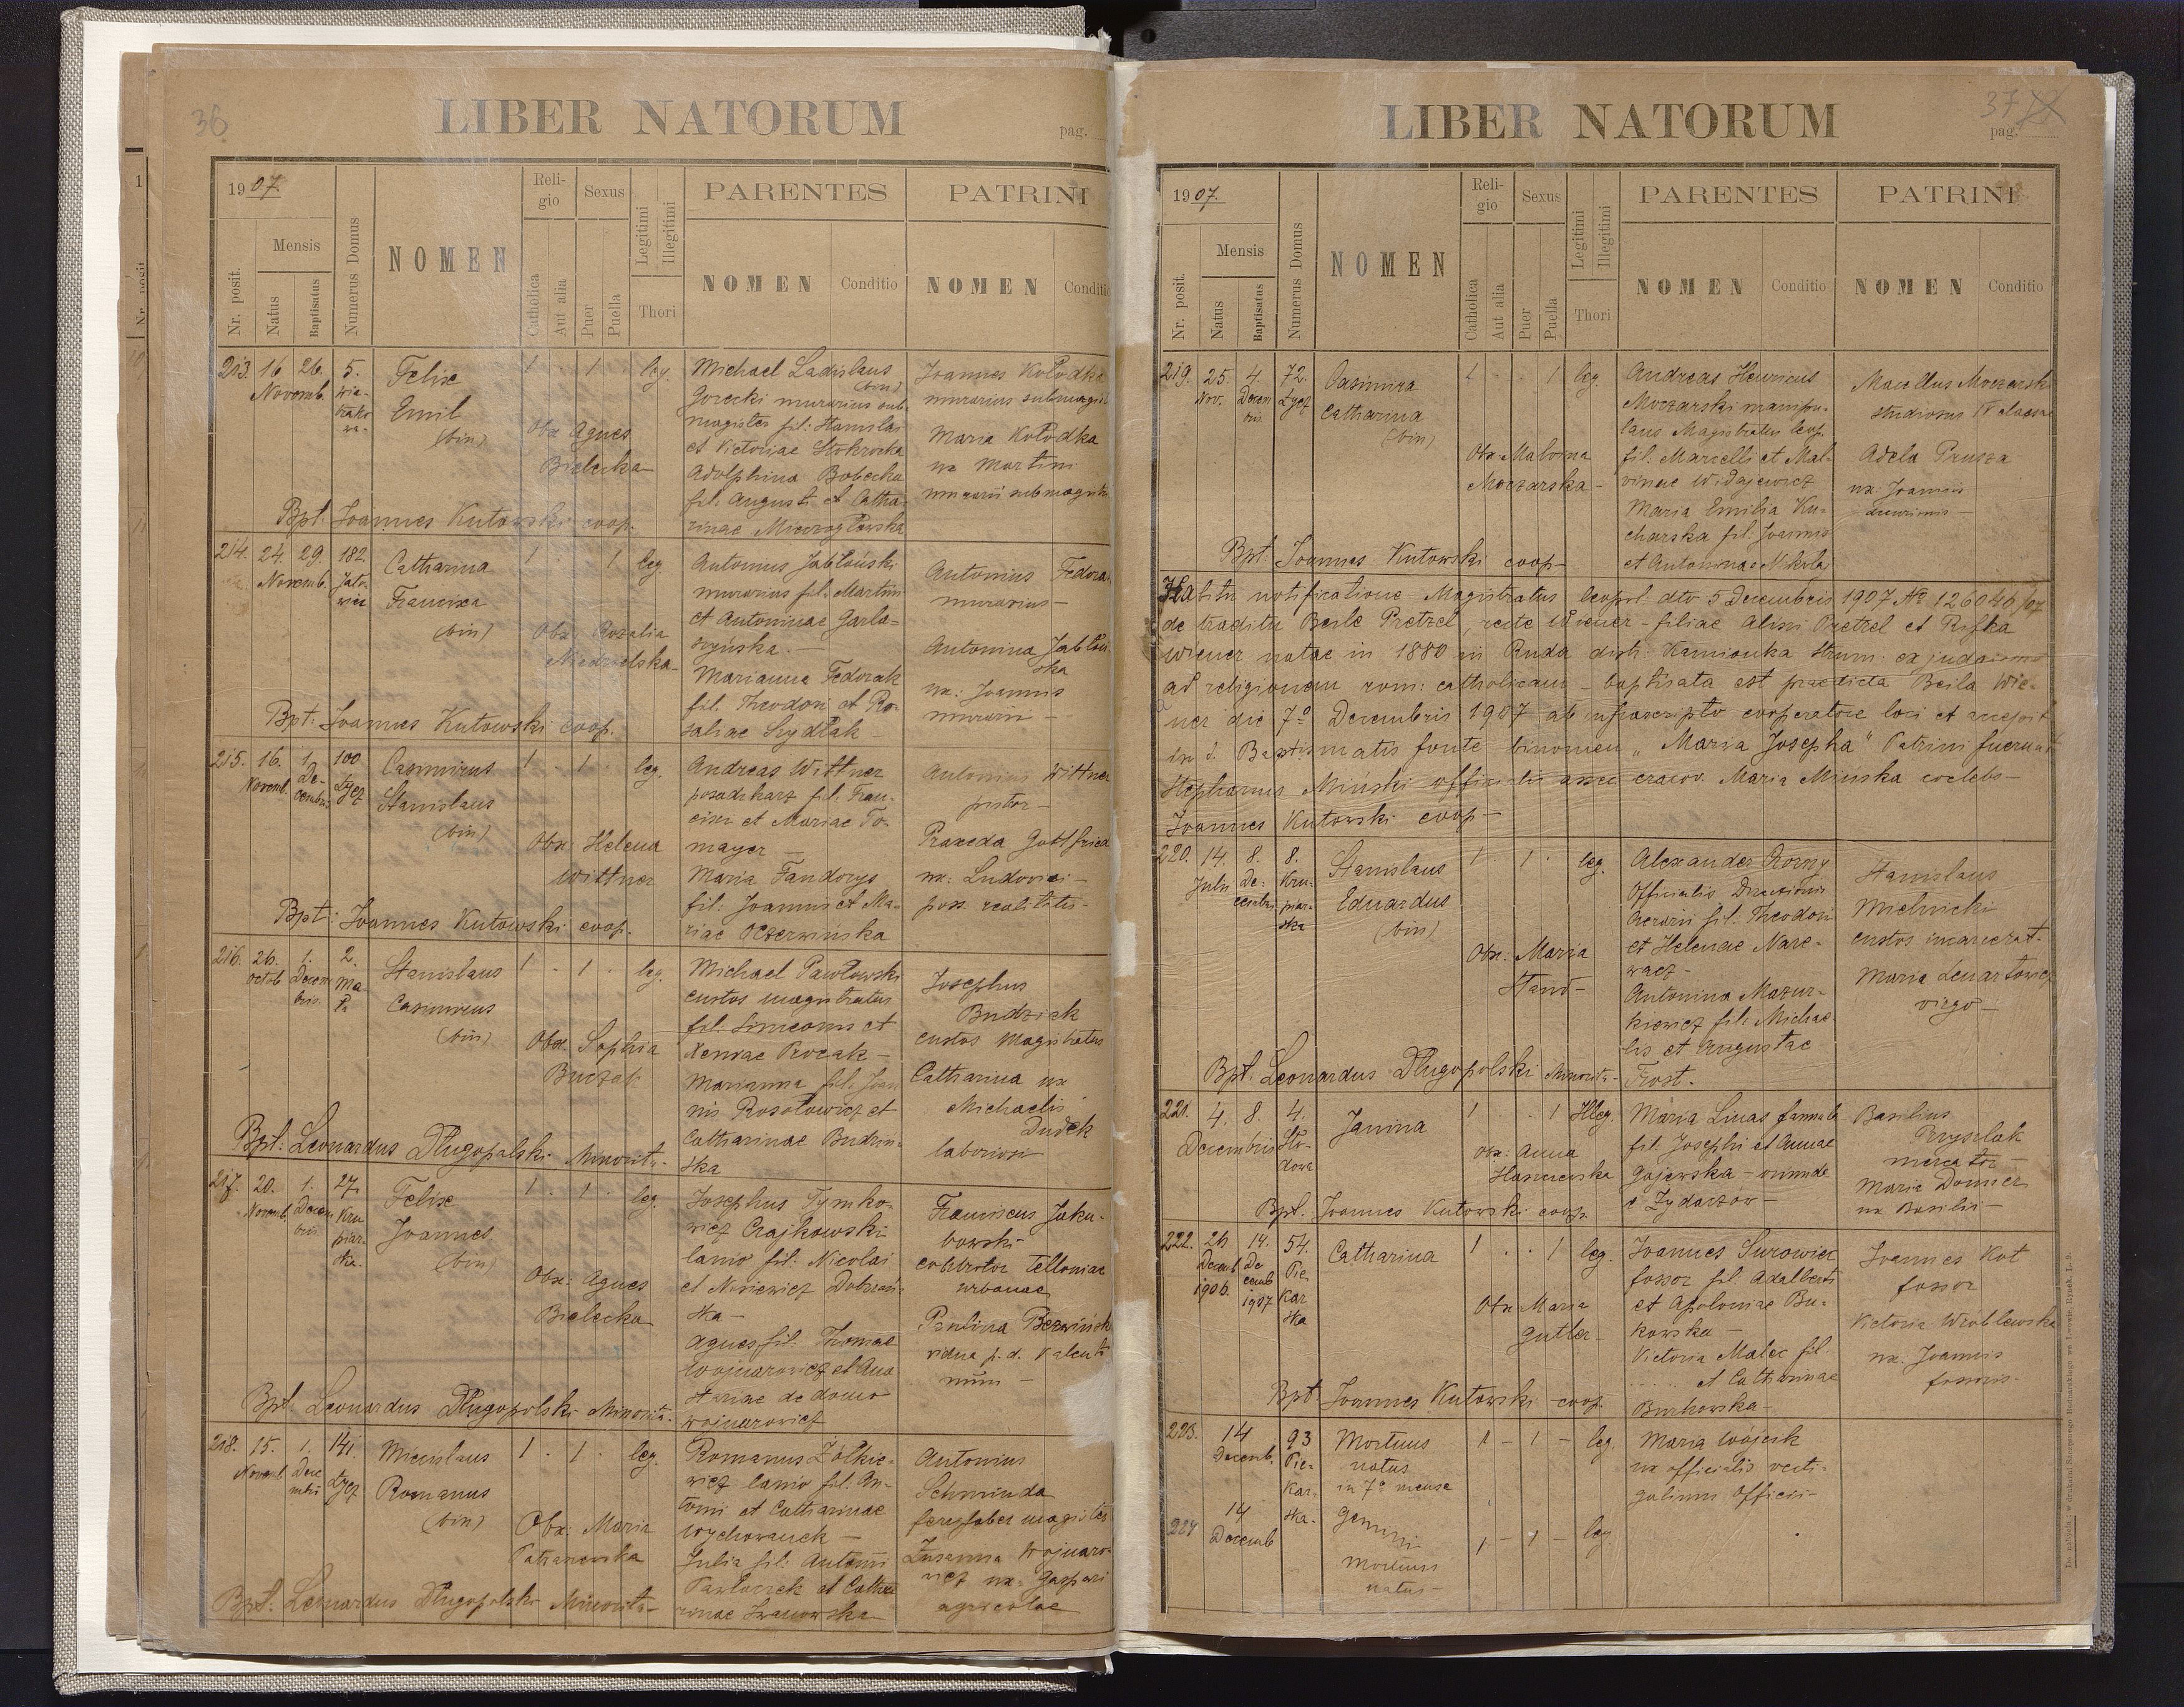 36
LIBER NATORUM
pag.
1907.
Nr. posit.
Mensis
Natus
Baptisatus
Numerus Domus
NOMEN
Reli-
gio
Catholica
Aut alia
Sexus
Puer
Puella
Legitimi
Illegitimi
Thori
PARENTES
NOMEN
Conditio
PATRINI
NOMEN
Conditio
213. 16 26. 5.
Novemb.
Felix
Emil
(bin)
1 . 1 . leg.
Obx Agnes
Bielecka
Michael Ladislaus
(bin)
Gorecki murarius sub-
magister fil: Stanislai
et Victoriae
Adolphina Bobecka
fil. Augusti et Catha-
rinae
Joannes Kołodka
murarius submagis
Maria Kołodka
ux Martini
murarii submagistri
Bpt. Joannes Kutowski coop.
214. 24. 29. 182.
Novemb. Jało-
wiec
Catharina
Francisca
(bin)
1 . . 1 leg
Obx. Rozalia
Niedzielska
Antonius Jabłoński
murarius fil. Martini
et Antoninae Garla-
szyńska. —
Marianna Fedorak
fil. Theodori et Ro-
saliae Szydłak —
Antonius Fedorak
murarius —
Antonina Jabłoń
ska
ux: Joannis
murarii —
Bpt: Joannes Kutowski coop.
215. 16. 1. 100
Novemb. De-
cembris Łycz
Casimirus
Stanislaus
(bin)
1 . 1 . leg.
Obx Helena
Wittner
Andreas Wittner
posadzkarz fil. Fran-
cisci et Mariae To-
mayer —
Maria Fandorys
fil. Joannis et Ma-
riae Oczerwińska
Antonius Wittner
pistor —
Praxeda Gottfried
ux: Ludovici —
poss. realitatis -
Bpt: Joannes Kutowski coop.
216. 26. 1. 2.
Octob Decem
bris. Ma-
ła
Stanislaus
Casimirus
(bin)
1 . 1 . leg.
Obx. Sophia
Buczek
Michael Pawłowski
custos magistratus
fil. Simeonis et
Xeniae Prozak —
Marianna fil. Joan
nis Rosołowicz et
Catharinae Budziń-
ska
Josephus
Budziak
custos Magistratus
Catharina ux
Michaelis
Dudek
laborioso
Bpt: Leonardus Długopolski Minorita -
217. 20. 1. 27.
Novemb. Decem
bris Kru
piar-
ska.
Felix
Joannes
(bin)
1 . 1 . leg.
Obx: Agnes
Bielecka
Josephus Tymko-
wicz Czajkowski
lanio fil. Nicolai
et Dobrzań-
ska —
Agnes fil. Thomae
Wojnarowicz et Ana
staziae de domo
Wojnarowicz
Franciscus Jaku-
bowski
Telloniae
urbanae
Paulina
vidua p. d. Valenti
num —
Bpt. Leonardus Długopolski Minorita -
218. 15. 1. 141
Novemb. Dece
mbri Łycz
Miecislaus
Romanus
(bin)
1 . 1 . leg.
Obx: Maria
Romanus Żółkie-
wicz lanio fil. An-
tonii et Catharinae
Wychowanek —
Julia fil. Antonii
Pawłoszek et Catha
rinae Iwanowska
Antonius
Schminda
magister
Zusanna Wojnaro-
wicz ux. Gaspari
agricolae
Bpt: Leonardus Długopolski Minorita -
37
LIBER NATORUM
pag.
1907.
Nr. posit.
Mensis
Natus
Baptisatus
Numerus Domus
NOMEN
Reli-
gio
Catholica
Aut alia
Sexus
Puer
Puella
Legitimi
Illegitimi
Thori
PARENTES
NOMEN
Conditio
PATRINI
NOMEN
Conditio
219. 25. 4. 72.
Nov. Decem
bris. Łycz
Casimira
Catharina
(bin)
1 . . 1 leg.
Obx. Malvina
Moczarska -
Andreas Henricus
Moczarski manipu-
lans Magistratus leop.
fil. Marcelli et Mal-
vinae Widajewicz
Maria Emilia Ku-
charska fil. Joannis
et Antoninae Nikola
Marcellus Moczarski
studiosus IV classae
Adela Prusza
ux. Joannis
decurionis —
Bpt. Joannes Kutowski coop -
Habita notificatione Magistratus leopol. dto 5 Decembris 1907 No 126046/07
de traditu Beile Pretzel, recte Wiener - filiae Pretzel et Rifka
Wiener natae in 1880 in Ruda distr. Kamionka Strum: ex judaismo
ad religionem rom: catholicam - baptisata est praedicta Beila Wie-
ner die 7a Decembris 1907 ab infrascripto cooperatore loci et accepit
in s. Baptismatis fonte binomen „Maria Josepha" Patrini fuerunt
Stephanus Miński officialis cracov. Maria Mińska coelebs —
Joannes Kutowski coop —
220. 14. 8. 8.
Julii De-
cembri Kru-
piar-
ska
Stanislaus
Eduardus
(bin)
1 . 1 . leg.
Obx: Maria
Alexander
Officialis Directionis
Aerarii fil. Theodori
et Helenae Nare-
wacz -
Antonina Mazur-
kiewicz fil. Michae
lis et Augustae
Frost.
Stanislaus
Mielnicki
custos incarcerat.
Maria Lenartowicz
virgo —
Bpt. Leonardus Długopolski Minorita -
221. 4. 8. 4.
Decembris Sto-
dowa
Janina
1 . . 1 Illeg.
Obx: Anna
Maria Linas famula
fil. Josephi et Annae
Gajewska - oriunda
e Żydaczów —
Basilius
Pryszlak
mercator —
Maria Donner
ux Basilii —
Bpt. Joannes Kutowski coop.
222. 26 14. 54.
Decemb De
cemb
1906. 1907 Pie
kar
ska
Catharina
1 . . 1 leg.
Obx Maria
Gutler -
Joannes Surowiec
fossor fil. Adalberti
et Apoloniae Bu-
kowska —
Victoria Malec fil.
et Catharinae
Burkowska -
Joannes Kot
fossor
Victoria Wróblewska
ux. Joannis
fossoris -
Bpt Joannes Kutowski coop.
223. 14 93
Decemb. Pie-
kar-
ska.
Mortuus
natus
in 7o mense
1 - 1 - leg.
Maria Wójcik
ux officialis vecti-
galium officii -
224 14
Decemb
Gemini
mortuus
natus -
1 - 1 - leg.